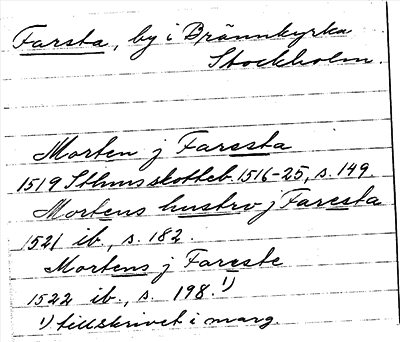 Farsta, by i Brännkyrka
Stockholm.
Morten j Faresta
1519 Sthms skotteb. 1516-25, s. 149.
Mortens hustro j Faresta
1521 ib., s. 182.
Mortens j Fareste
1522 ib., s. 198.¹⁾
¹⁾ tillskrivet i marg.